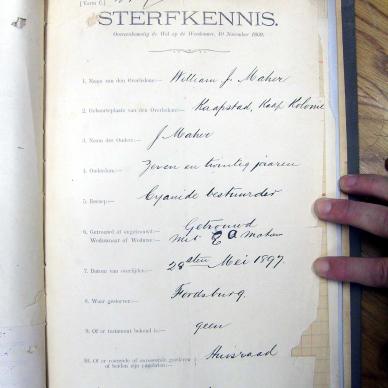 [Form C.]
STERFKENNIS.
Overeenkomstig de Wet op de Weeskamer, 19 November 1869.
1. Naam van den Overledene:— William J. Maher
2. Geboorteplaats van den Overledene:— Kaapstad, Kaap Kolonie
3. Naam der Ouders:— J Maher
4. Ouderdom:— Zeven en twintig jaaren
5. Beroep:— Cyanide bestuurder
6. Getrouwd of ongetrouwd:— Getrouwd
Weduwnaar of Weduwe:— met E A Maher
7. Datum van overlijden:— 28sten Mei 1897
8. Waar gestorven:— Fordsburg.
9. Of er testament bekend is:— geen
10. Of er roerende of onroerende goederen Huisraad
of beiden zijn nagelaten:—